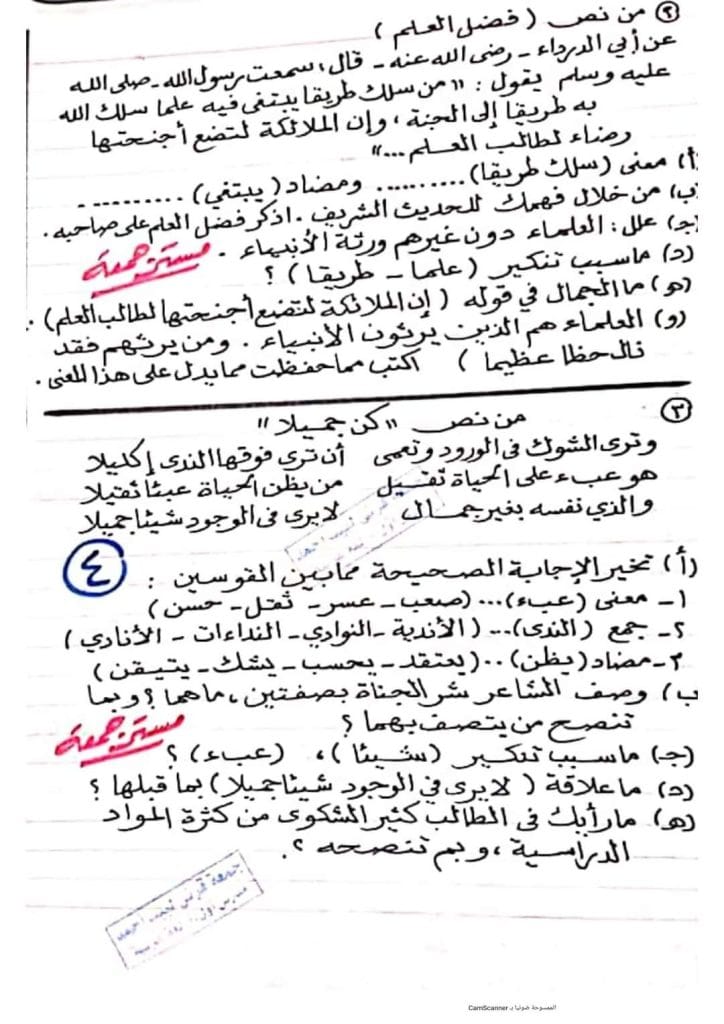 ٢ من نص ( فضل العلم )
عن أبي الدرداء - رضى الله عنه - قال : سمعت رسول الله - صلى الله
عليه وسلم يقول : " من سلك طريقا يبتغى فيه علما سلك الله
به طريقا إلى الجنة ، وإن الملائكة لتضع أجنحتها
رضاء لطالب العلم ..."
(أ) معنى (سلك طريقا) .......... ومضاد ( يبتغي ) ..........
(ب) من خلال فهمك للحديث الشريف . اذكر فضل العلم على صاحبه .
(جـ) علل : العلماء دون غيرهم ورثة الأنبياء .
مستر جمعة
(د) ماسبب تنكير ( علما - طريقا ) ؟
(هـ) ما الجمال في قوله ( إن الملائكة لتضع أجنحتها لطالب العلم ) .
(و) العلماء هم الذين يرثون الأنبياء . ومن يرثهم فقد
نال حظا عظيما ) اكتب مما حفظت مما يدل على هذا المعنى .
٣ من نص " كن جميلا "
وترى الشوك في الورود وتعمى أن ترى فوقها الندى إكليلا
هو عبء على الحياة ثقيل من يظن الحياة عبئا ثقيلا
والذي نفسه بغير جمال لا يرى في الوجود شيئا جميلا
٤
(أ) تخير الإجابة الصحيحة مما بين القوسين :
١- معنى (عبء) ... (صعب - عسر - ثقل - حسن )
٢- جمع (الندى) ... ( الأندية - النوادي - النداءات - الأنادي )
٣- مضاد ( يظن ) .. ( يعتقد - يحسب - يشك - يتيقن )
ب) وصف الشاعر شر الجناة بصفتين ، ما هما ؟ وبما
تنصح من يتصف بهما ؟
مستر جمعة
(جـ) ماسبب تنكير ( شيئا ) ، (عبء) ؟
(د) ما علاقة ( لا يرى في الوجود شيئا جميلا ) بما قبلها ؟
(هـ) ما رأيك في الطالب كثير الشكوى من كثرة المواد
الدراسية ، وبم تنصحه ؟.
الممسوحة ضوئيا بـ CamScanner